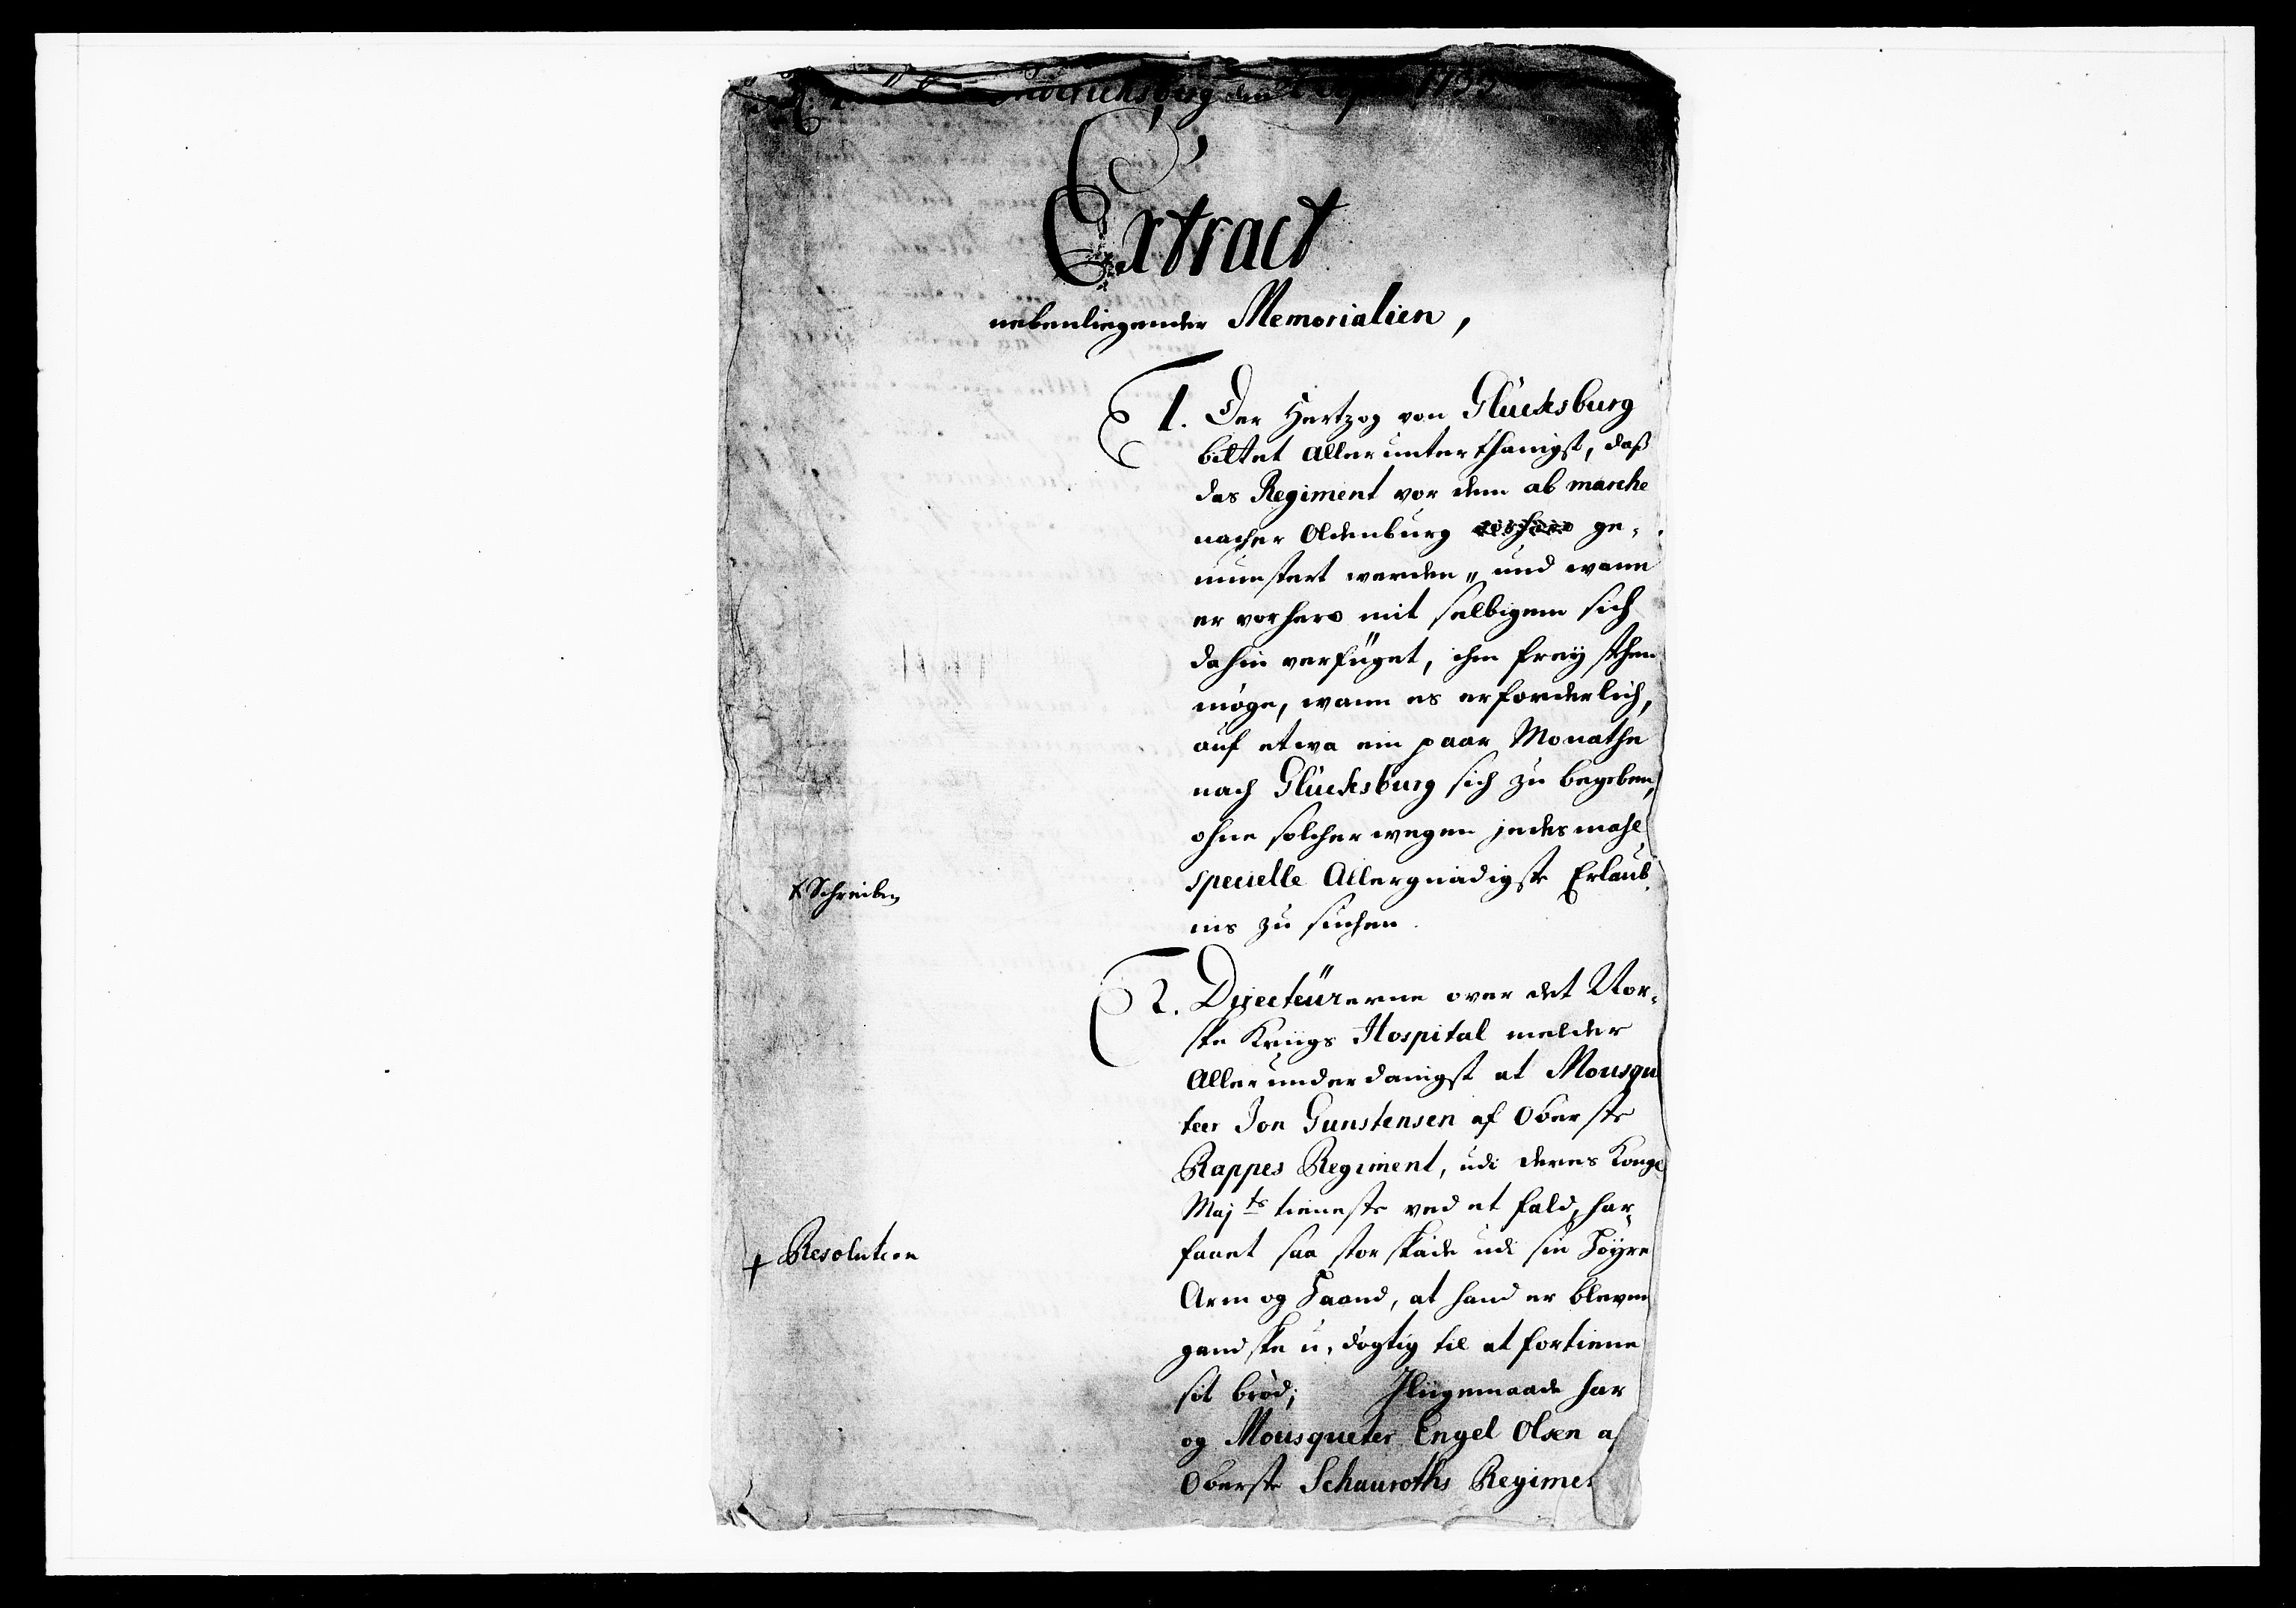 Fridrichsberg den April 1733
Extract
nebenliegender Memorialien,
1. Der Hertzog von Glücksburg
bittet allerunterthänigst, daß
das Regiment vor dem ab marche
nacher Oldenburg ge-
munstert werden, und wann
er vorhero mit selbigem sich
dahin verfüget, ihm frey stehen
möge, wann es erforderlich,
auf etwa ein paar Monathe
nach Glücksburg sich zu begeben,
ohne solcher wegen jedesmahl
specielle Allergnädigste Erlaub-
nis zu suchen.
x Schreiben
2. Directeürerne over det Nor-
ske Kriigs Hospital melder
Allerunderdanigst at Mousque
teer Jon Gunstensen af Oberste
Rappes Regiment, udi deres Kongl
Majts tieneste ved et fald, har
faaet saa stor skade udi sin Høyre
Arm og Haand, at hand er bleven
gandske u-døgtig til at fortiene
sit brød; Jliigemaade har
og Mousqueter Engel Olsen af
Oberste Schauroths Regiment
+ Resolution